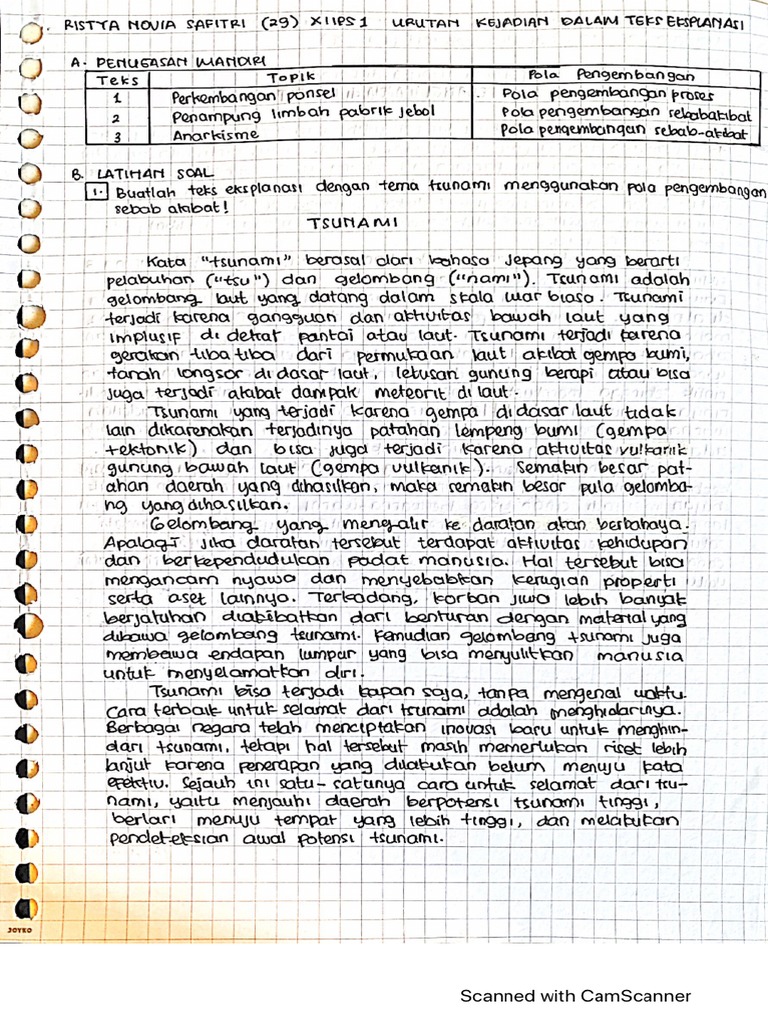 RISTYA NOVIA SAFITRI (29) XII IPS 1 URUTAN KEJADIAN DALAM TEKS EKSPLANASI
A. PENUGASAN MANDIRI
Teks Topik Pola Pengembangan
1 Perkembangan ponsel Pola pengembangan proses
2 Penampung limbah pabrik jebol Pola pengembangan sebab akibat
3 Anarkisme Pola pengembangan sebab-akibat
B. LATIHAN SOAL
1. Buatlah teks eksplanasi dengan tema tsunami menggunakan pola pengembangan
sebab akibat!
TSUNAMI
Kata "tsunami" berasal dari bahasa Jepang yang berarti
pelabuhan ("tsu") dan gelombang ("nami"). Tsunami adalah
gelombang laut yang datang dalam skala luar biasa. Tsunami
terjadi karena gangguan dan aktivitas bawah laut yang
implusif di dekat pantai atau laut. Tsunami terjadi karena
gerakan tiba tiba dari permukaan laut akibat gempa bumi,
tanah longsor di dasar laut, letusan gunung berapi atau bisa
juga terjadi akibat dampak meteorit di laut.
Tsunami yang terjadi karena gempa didasar laut tidak
lain dikarenakan terjadinya patahan lempeng bumi (gempa
tektonik) dan bisa juga terjadi karena aktivitas vulkanik
gunung bawah laut (gempa vulkanik). Semakin besar pat-
ahan daerah yang dihasilkan, maka semakin besar pula gelomba-
ng yang dihasilkan.
Gelombang yang mengalir ke daratan akan berbahaya.
Apalagi jika daratan tersebut terdapat aktivitas kehidupan
dan berkependudukan padat manusia. Hal tersebut bisa
mengancam nyawa dan menyebabkan kerugian properti
serta aset lainnya. Terkadang, korban jiwa lebih banyak
berjatuhan diakibatkan dari benturan dengan material yang
dibawa gelombang tsunami. Kemudian gelombang tsunami juga
membawa endapan lumpur yang bisa menyulitkan manusia
untuk menyelamatkan diri.
Tsunami bisa terjadi kapan saja, tanpa mengenal waktu.
Cara terbaik untuk selamat dari tsunami adalah menghidarinya.
Berbagai negara telah menciptakan inovasi baru untuk menghin-
dari tsunami, tetapi hal tersebut masih memerlukan riset lebih
lanjut karena penerapan yang dilakukan belum menuju kata
efektiv. Sejauh ini satu-satunya cara untuk selamat dari tsu-
nami, yaitu menjauhi daerah berpotensi tsunami tinggi,
berlari menuju tempat yang lebih tinggi, dan melakukan
pendeteksian awal potensi tsunami.
JOYKO
Scanned with CamScanner